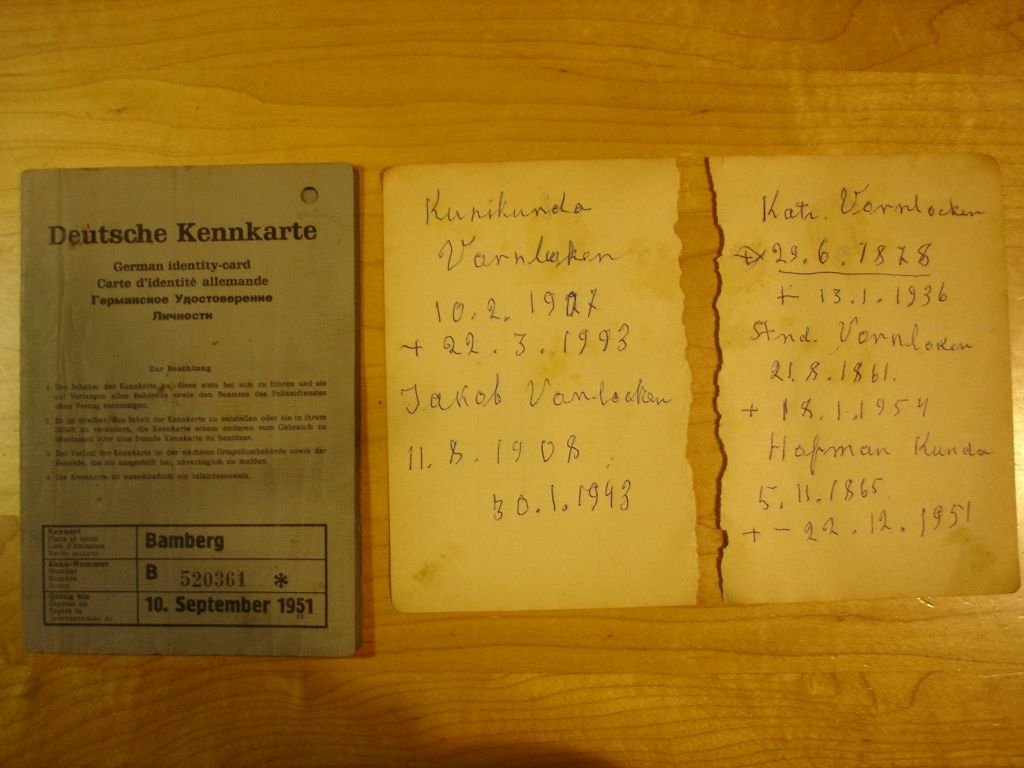 Deutsche Kennkarte
German identity-card
Carte d'identité allemande
Германское Удостоверение
Личности
Zur Beachtung
1. Der Inhaber der Kennkarte hat diese stets bei sich zu führen und sie
auf Verlangen allen Behörden sowie den Beamten des Polizeidienstes
ohne Verzug vorzuzeigen.
2. Es ist strafbar, den Inhalt der Kennkarte zu entstellen oder sie in ihrem
Inhalt zu verändern, die Kennkarte einem anderen zum Gebrauch zu
überlassen oder eine fremde Kennkarte zu benützen.
3. Der Verlust der Kennkarte ist der nächsten Ortspolizeibehörde sowie der
Behörde, die sie ausgestellt hat, unverzüglich zu melden.
4. Die Kennkarte ist ausschließlich ein Inlandsausweis.
Kennort
Place of issue
Lieu d'émission
Bamberg
Kenn-Nummer
Number
Numéro
B 520361 *
Gültig bis
Expires on
Expire le
10. September 1951
Kunikunda
Vornlocken
10.2.1907
+ 22.3.1993
Jakob Vonlocken
11.8.1908
30.1.1943
Katr. Vornlocken
29.6.1878
+ 13.1.1936
And. Vornlocken
21.8.1861.
+ 18.1.1954
Hofman Kunda
5.11.1865
+ - 22.12.1951